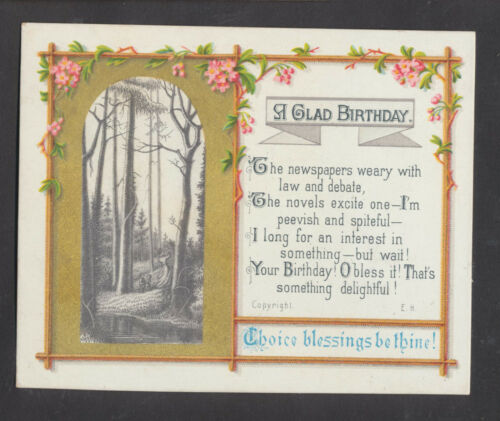 A GLAD BIRTHDAY.
The newspapers weary with
law and debate,
The novels excite one—I'm
peevish and spiteful—
I long for an interest in
something—but wait!
Your Birthday! O bless it! That's
something delightful!
Copyright. E. H.
Choice blessings be thine!